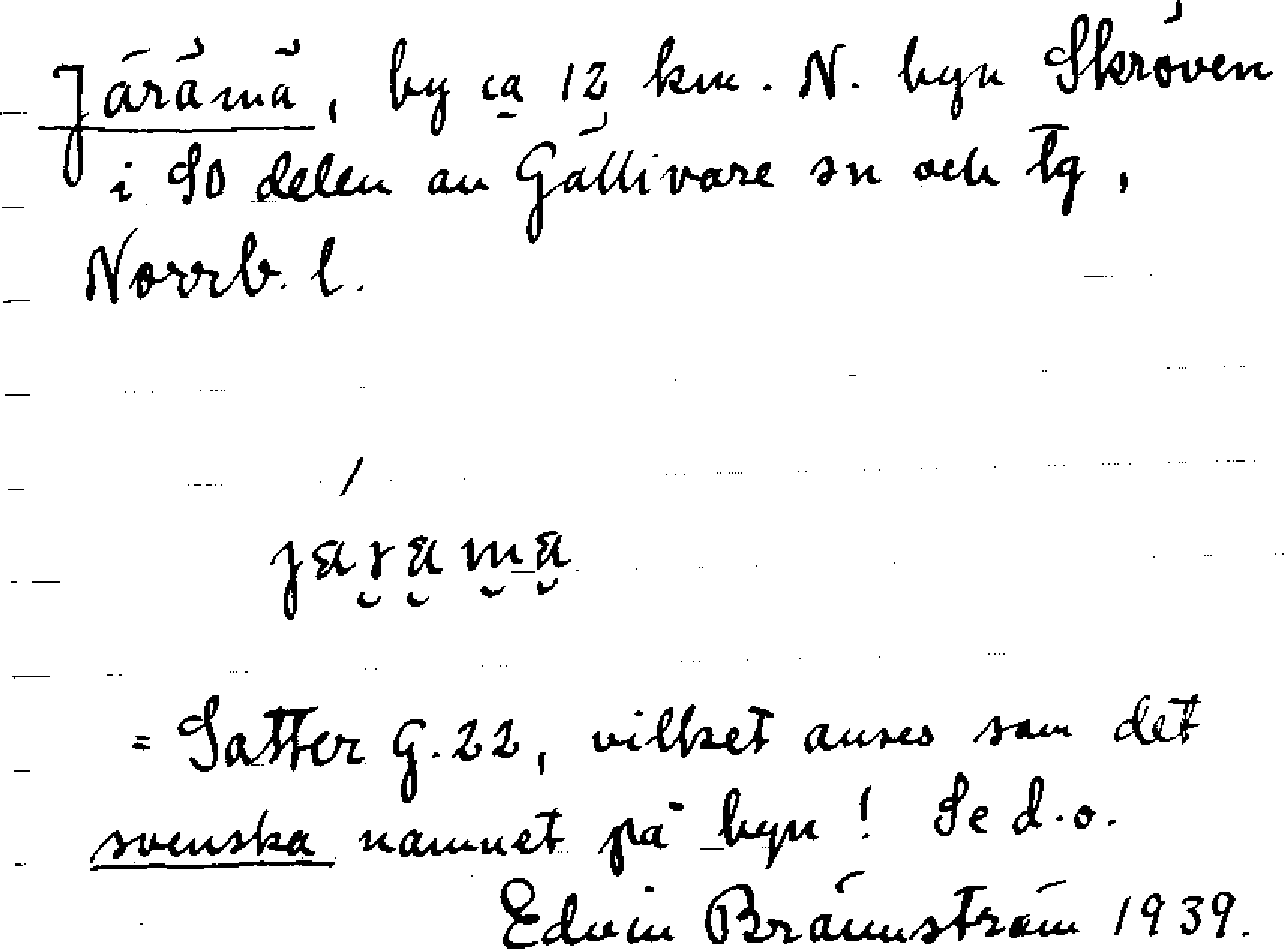 Järämä, by ca 12 km. N. byn Skröven
i SO delen av Gällivare sn och tg,
Norrb. l.
= Satter G. 22, vilket anses som det
svenska namnet på byn! Se d.o.
Edvin Brännström 1939.